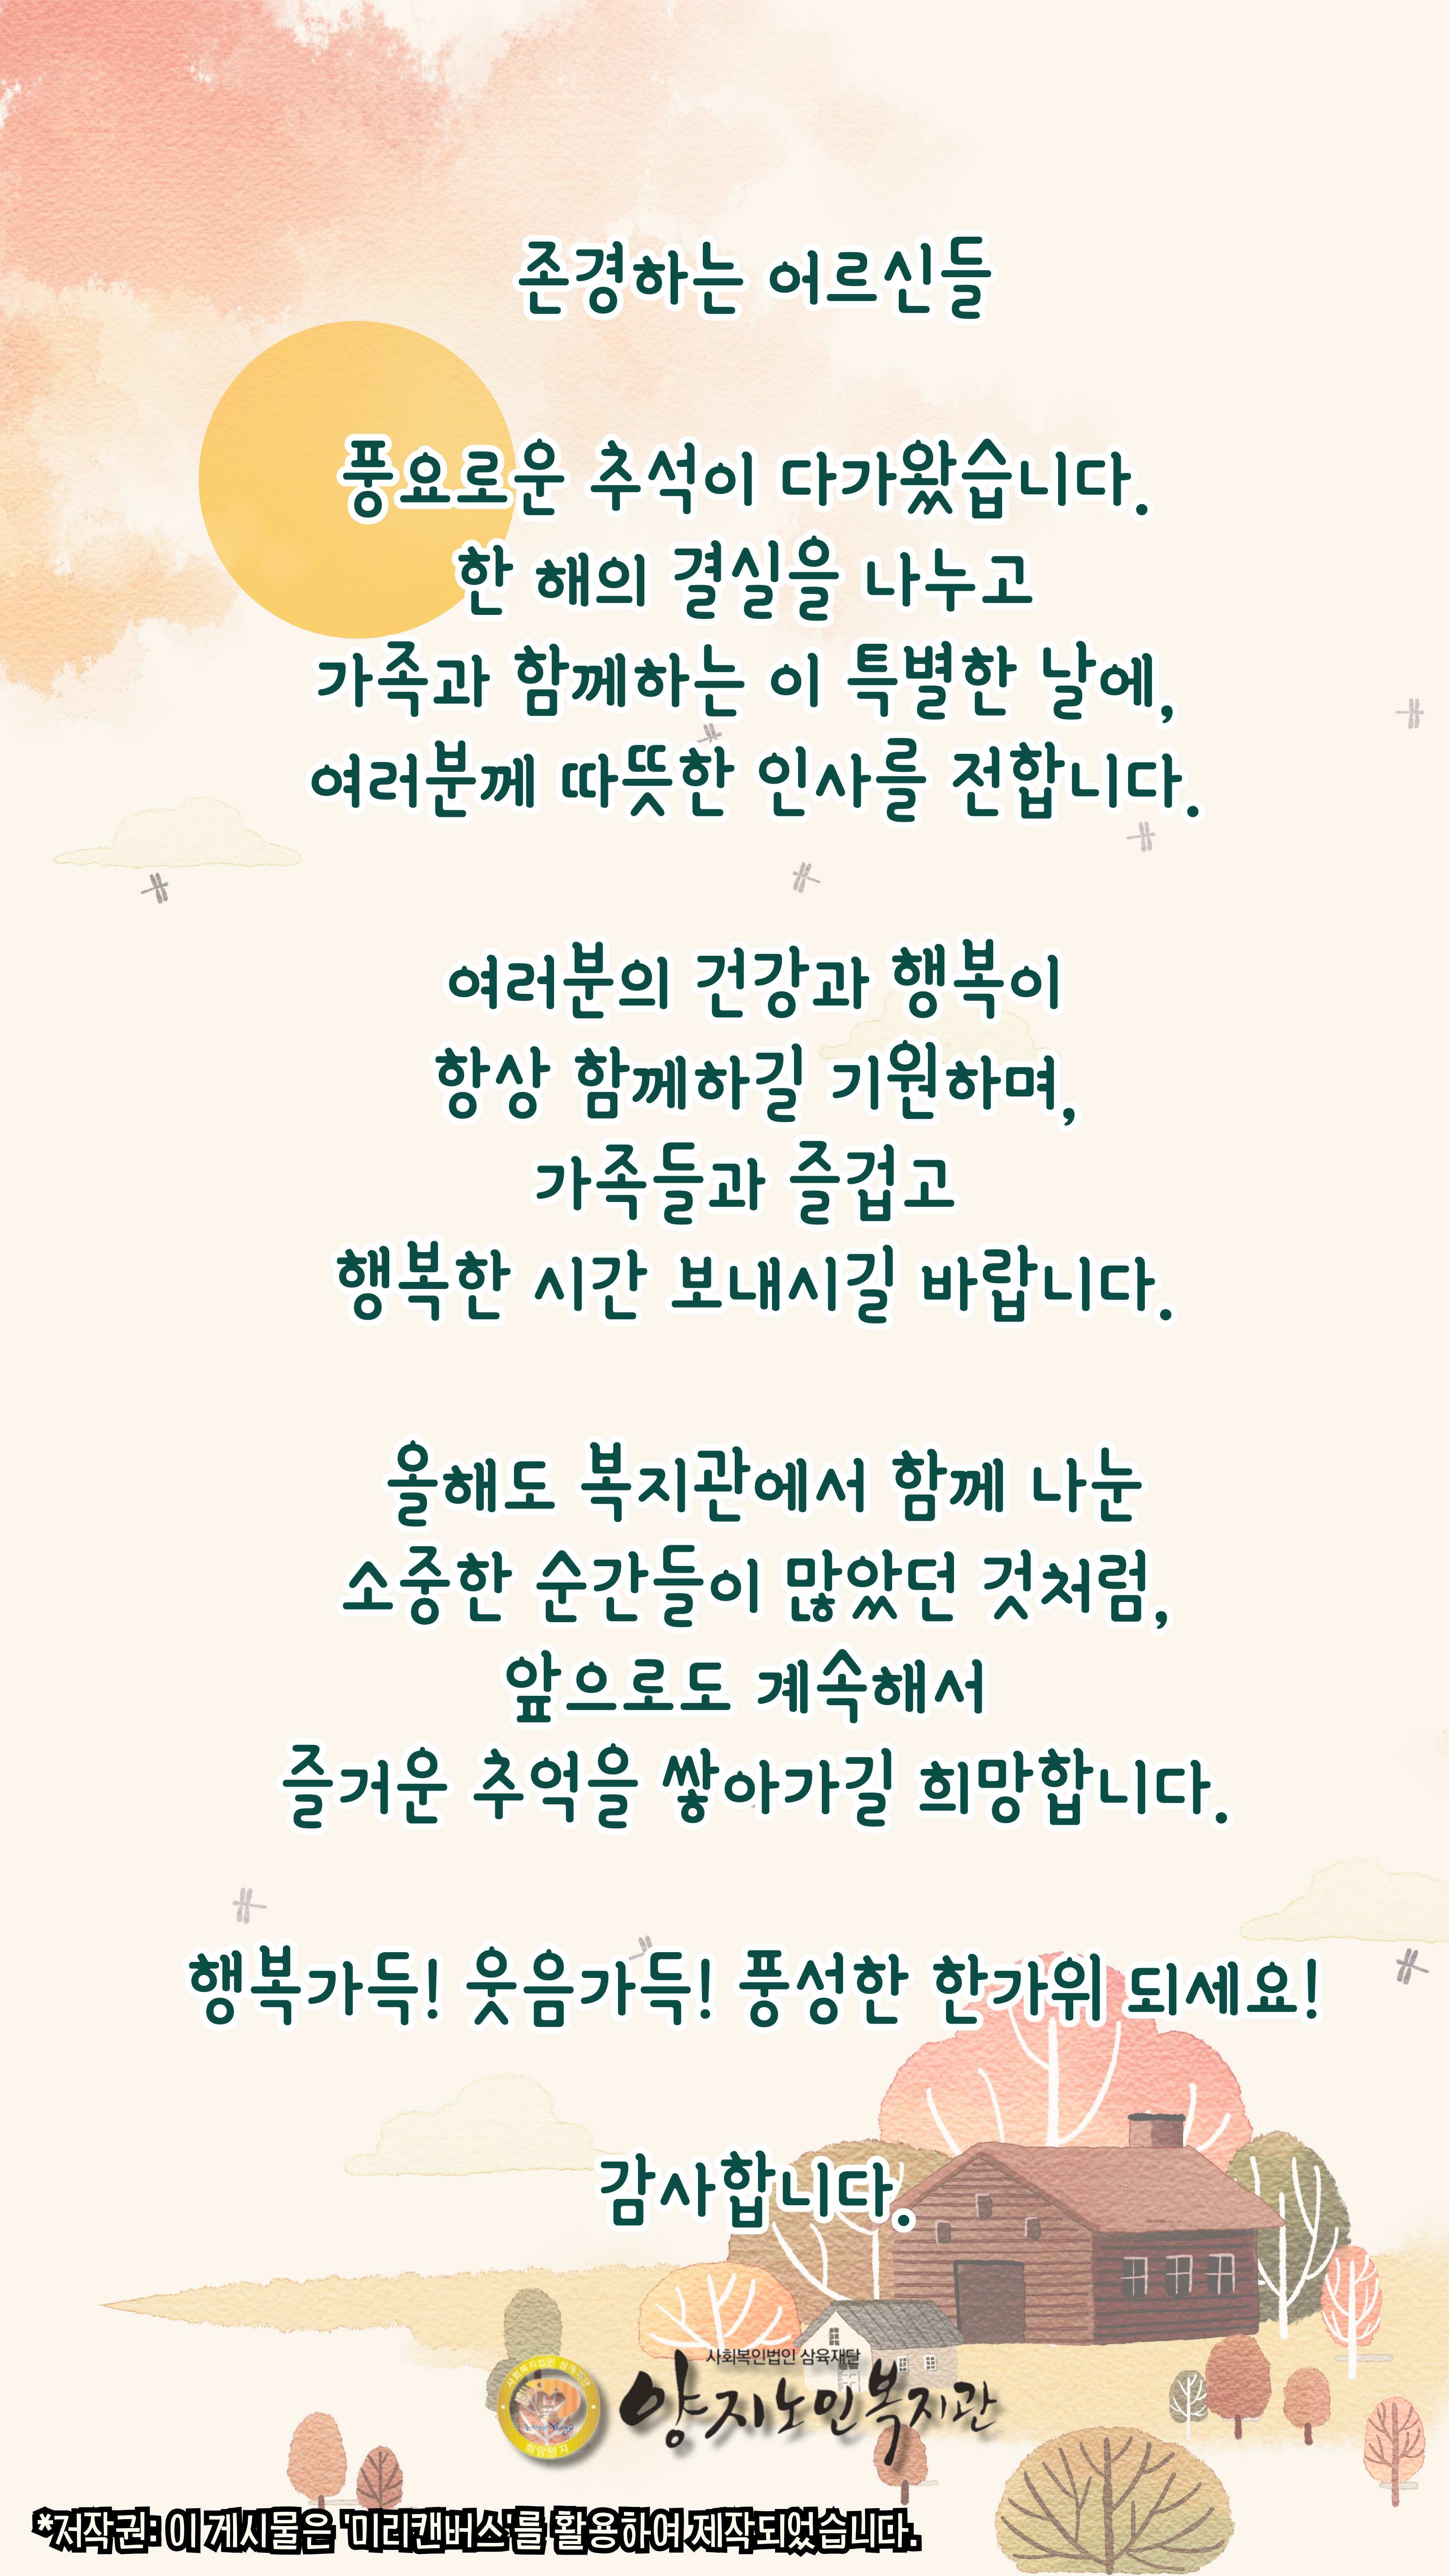 존경하는 어르신들
풍요로운 추석이 다가왔습니다.
한 해의 결실을 나누고
가족과 함께하는 이 특별한 날에,
여러분께 따뜻한 인사를 전합니다.
여러분의 건강과 행복이
항상 함께하길 기원하며,
가족들과 즐겁고
행복한 시간 보내시길 바랍니다.
올해도 복지관에서 함께 나눈
소중한 순간들이 많았던 것처럼,
앞으로도 계속해서
즐거운 추억을 쌓아가길 희망합니다.
행복가득! 웃음가득! 풍성한 한가위 되세요!
감사합니다.
사회복인법인 삼육재단
양지노인복지관
사회복지법인 삼육재단
희망양지
*저작권: 이 게시물은 '미리캔버스'를 활용하여 제작되었습니다.